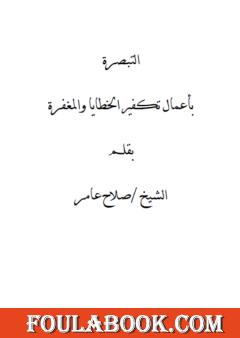 التبصرة
بأعمال تكفير الخطايا والمغفرة
بقلم
الشيخ / صلاح عامر
FOULABOOK.COM